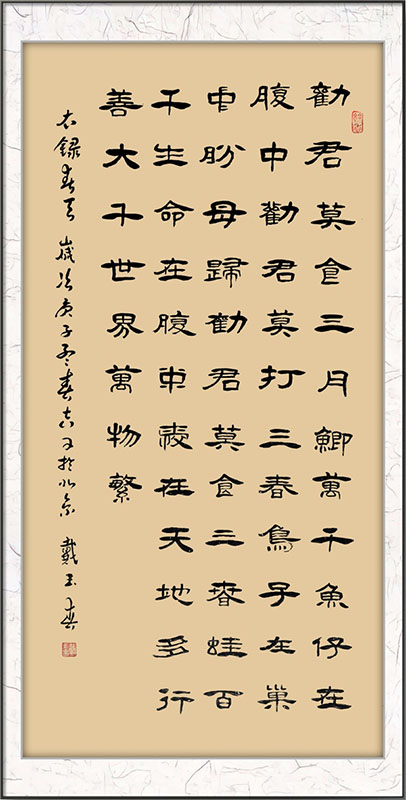 勸君莫食三月鯽萬千魚仔在
腹中勸君莫打三春鳥子在巢
中盼母歸勸君莫食三春蛙百
千生命在腹中在天地多行
善大千世界萬物繁
右録春 歲次庚子春於北京 戴玉